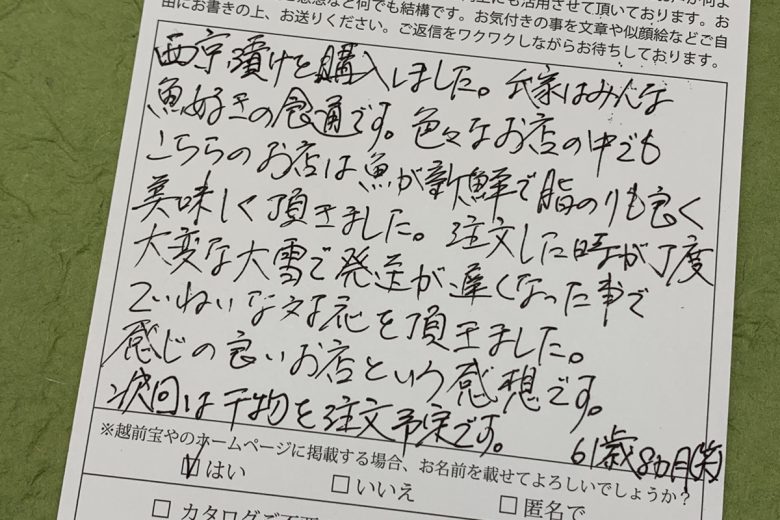 も活用させて頂いております。お
由にお書きの上、お送りください。ご返信をワクワクしながらお待ちしております。
など何でも結構です。お気付きの事を文章や似顔絵などご自
西京漬けを購入しました。氏家はみんな
魚好きの食通です。色々なお店の中でも
こちらのお店は魚が新鮮で脂のりも良く
美味しく頂きました。注文した時が丁度
大変な大雪で発送が遅くなった事で
ていねいな対応を頂きました。
感じの良いお店という感想です。
次回は干物を注文予定です。
61歳8カ月(笑)
※越前宝やのホームページに掲載する場合、お名前を載せてよろしいでしょうか?
はい
いいえ
匿名で
カタログご不要